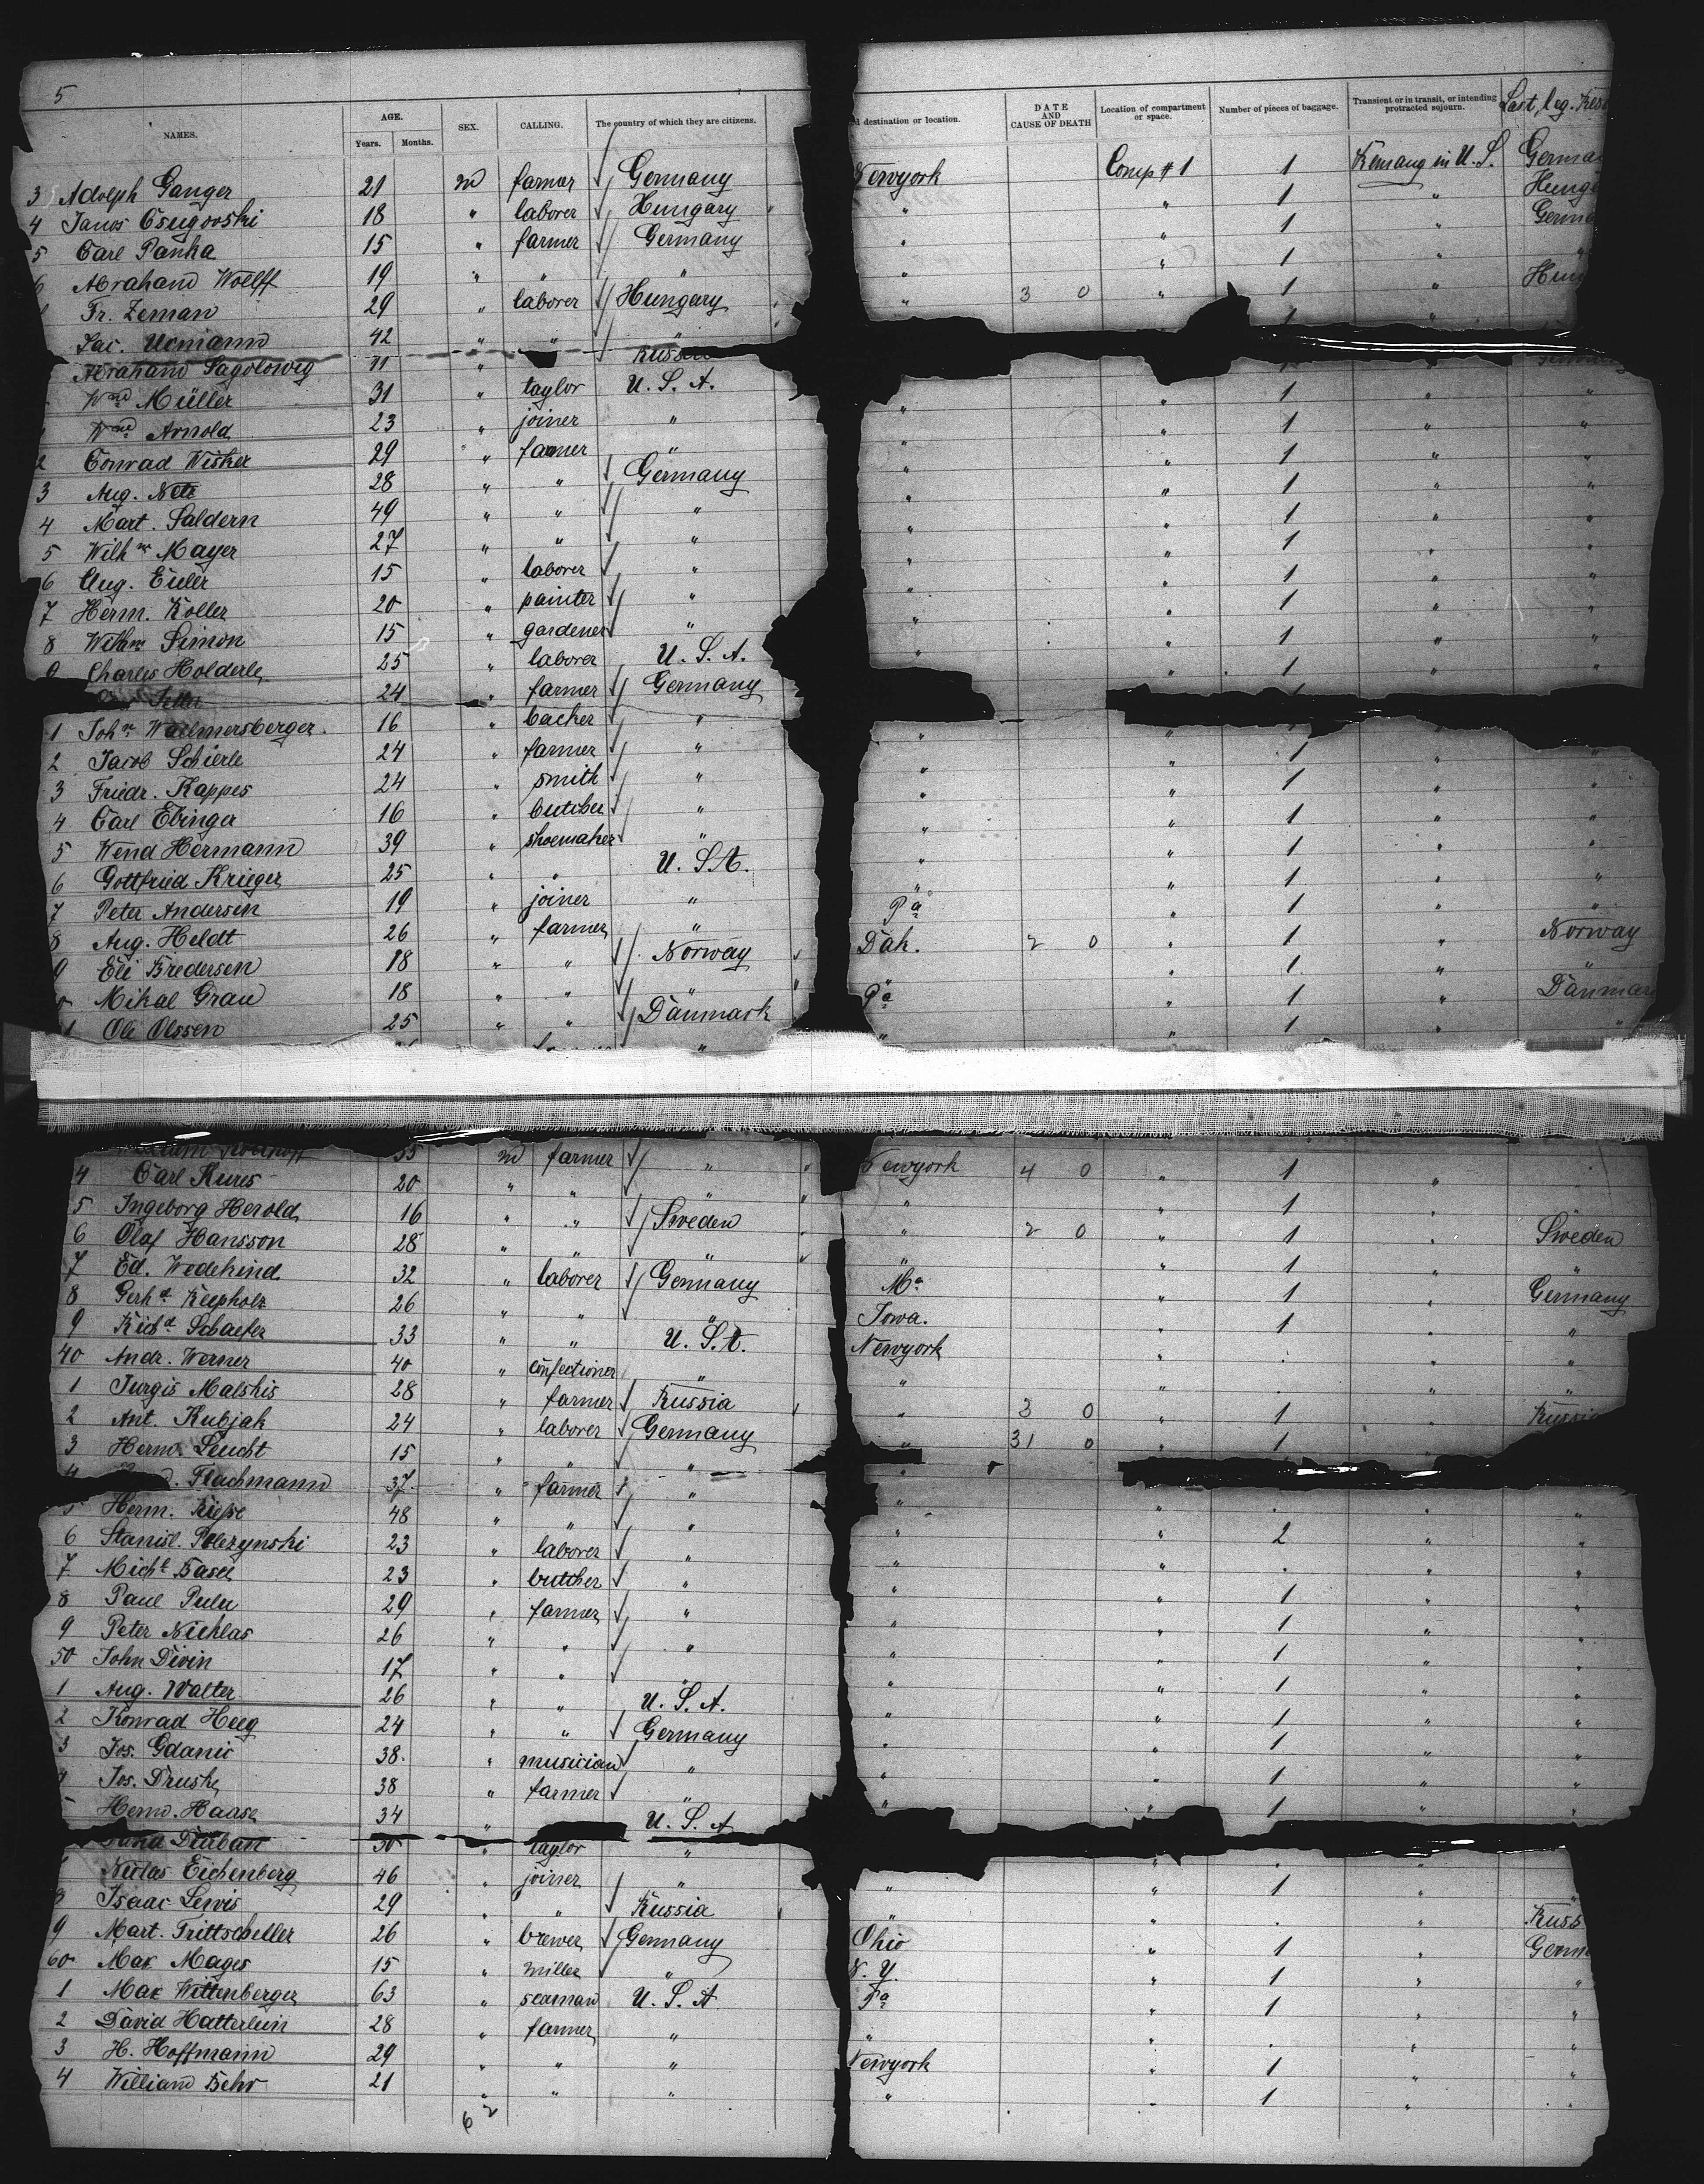 5
NAMES. AGE. Years. Months. SEX. CALLING. The country of which they are citizens. destination or location. DATE AND CAUSE OF DEATH Location of compartment or space. Number of pieces of baggage. Transient or in transit, or intending protracted sojourn. Last leg. Resi
3 Adolph Ganger 21 m farmer Germany Newyork Comp # 1 1 Remang in U. S. German
4 Janos Csugovski 18 " laborer Hungary " " 1 " Hunga
5 Carl Panka 15 " farmer Germany " " 1 " Germa
6 Abraham Woelff 19 " " " " " 1 "
Fr. Zeman 29 " laborer Hungary " 3 0 " 1 " Hung
Jac. Usmann 42 " " "
Abraham Sagolowig 11 " Russia
Wm Müller 31 " taylor U. S. A. " " 1 " "
Wm Arnold 23 " joiner " " " 1 " "
2 Conrad Wisker 29 " farmer " " " 1 " "
3 Aug. Netz 28 " " Germany " " 1 " "
4 Mart. Saldern 49 " " " " " 1 " "
5 Wilhm Mayer 27 " " " " " 1 " "
6 Aug. Euler 15 " laborer " " " 1 " "
7 Herm. Koller 20 " painter " " " 1 " "
8 Wilhm Simon 15 " gardener " " " 1 " "
9 Charles Holderle 25 " laborer U. S. A. " 1 "
24 " farmer Germany
1 John Wallmersberger 16 " backer " " "
2 Jacob Schierle 24 " farmer " " " 1 " "
3 Friedr. Kappes 24 " smith " " " 1 " "
4 Carl Ebinger 16 " butcher " " " 1 " "
5 Wend Hermann 39 " shoemaker " " " 1 " "
6 Gottfried Krieger 25 " " U. S. A. " " 1 " "
7 Peter Andersen 19 " joiner " Pa " 1 " "
8 Aug. Heldt 26 " farmer " Dak. 2 0 " 1 " Norway
9 Eli Bredersen 18 " " Norway " " 1 "
Mikal Grau 18 " " " Pa " 1 " Dänmar
1 Ole Olssen 25 " " Dänmark " " 1 " "
35 m farmer " Newyork 4 0 " 1
4 Carl Kures 20 " " " " " 1 "
5 Ingeborg Herold 16 " " Sweden " 2 0 " 1 " Sweden
6 Olaf Hansson 28 " " " " " 1 " "
7 Ed. Wedekind 32 " laborer Germany Ma " 1 " Germany
8 Gerhd Kiepholz 26 " " " Iowa. " 1 " "
9 Richd Schaefer 33 " " U. S. A. Newyork " . " "
40 Andr. Werner 40 " confectioner " " " . " "
1 Jurgis Malskis 28 " farmer Russia " 3 0 " 1 " Russia
2 Ant. Kubjak 24 " laborer Germany " 31 0 " 1 "
3 Herm. Leucht 15 " " " "
4 Flachmann 37 " farmer " " " . " "
5 Herm. 48 " " " " " 2 " "
6 Stanisl. Polczynski 23 " laborer " " " . " "
7 Michl Basel 23 " butcher " " " 1 " "
8 Paul Pulu 29 " farmer " " " 1 " "
9 Peter Nichlas 26 " " " " " 1 " "
50 John Divin 17 " " " " " 1 " "
1 Aug. Walter 26 " " U. S. A. " " 1 " "
2 Konrad Heeg 24 " " Germany " " 1 " "
3 Jos. Gdanic 38 " musician " " " 1 " "
4 Jos. Druske 38 " farmer " " " 1 " "
5 Herm. Haase 34 " U. S. A
Duban 30 " taylor " " . "
Niclas Eichenberg 46 " joiner " " " 1 " "
8 Isaac Lewis 29 " " Russia " " . " Russ
9 Mart. Trittscheller 26 " brewer Germany Ohio " 1 " Germ
60 Max Mages 15 " miller " N. Y. " 1 " "
1 Max Wittenberger 63 " seaman U. S. A Pa " 1 " "
2 David Hatterlein 28 " farmer " " " . " "
3 H. Hoffmann 29 " " " Newyork " 1 " "
4 William Behr 21 " " " " " 1 " "
6 2